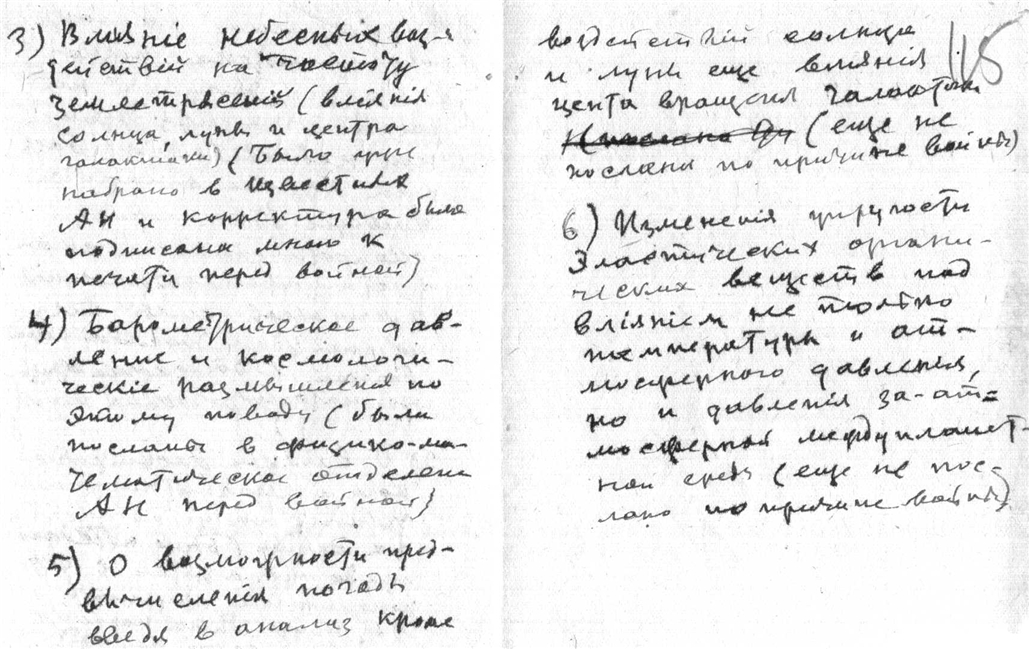 3) Вліяніе небесных воз-
действій на частоту
землетрясеній (вліянія
солнца, луны и центра
галактики) (Было уже
набрано в Известиях
АН и корректура была
подписана мною к
печати перед войной)
4) Барометрическое дав-
ление и космологи-
ческіе размышленія по
этому поводу (были
посланы в физико-ма-
тематическое отделение
АН перед войной)
5) О возможности пред-
вычисленія погоды
введя в анализ кроме
115
воздействій солнца
и луны еще вліянія
центра вращения галактики
(еще не
послана по причине войны)
6) Измененія упругости
эластических органи-
ческих веществ под
вліяніем не только
температуры и ат-
мосферного давленія,
но и давленія за-ат-
мосферной междупланет-
ной среды (еще не пос-
лано по причине войны)